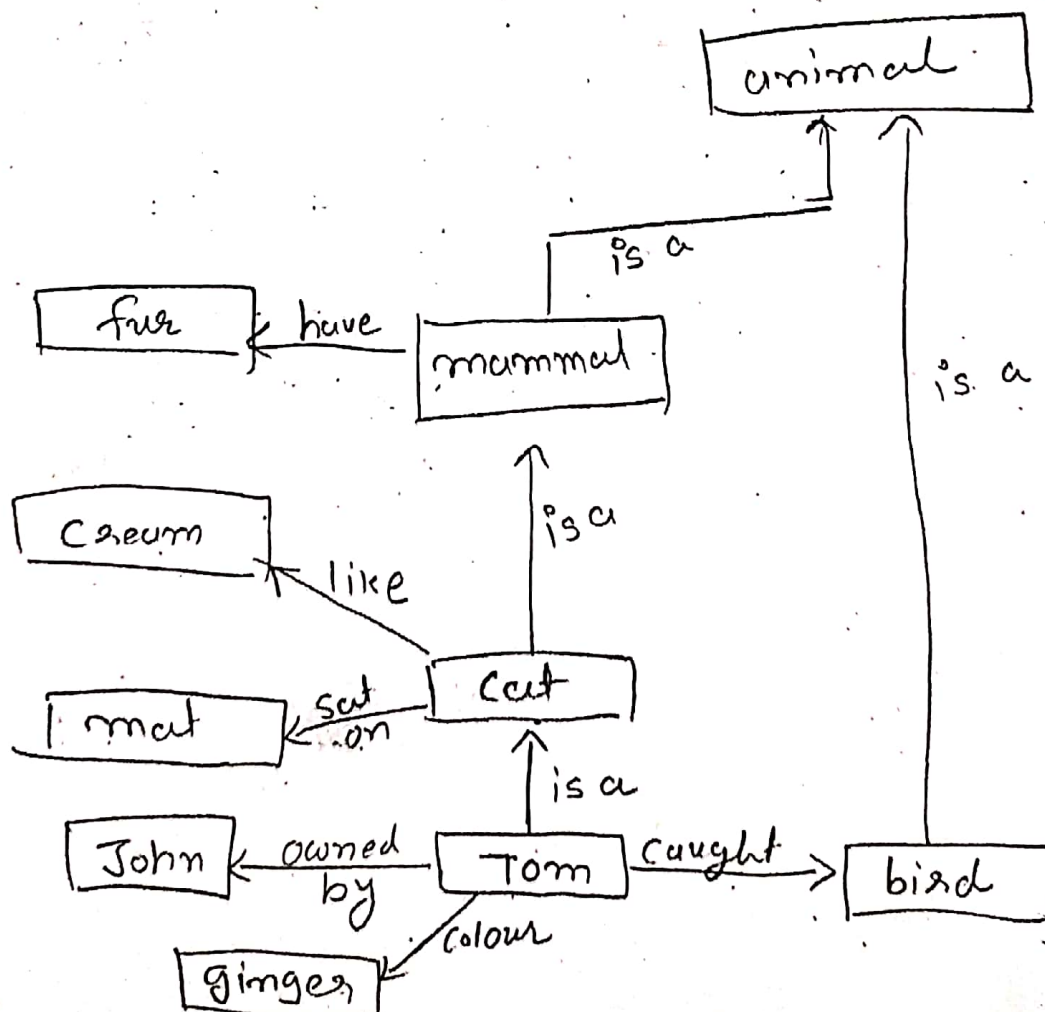 animal
is a
fur
have
mammal
is a
Cream
like
is a
mat
sat
on
Cat
is a
John
owned
by
Tom
caught
bird
colour
ginger